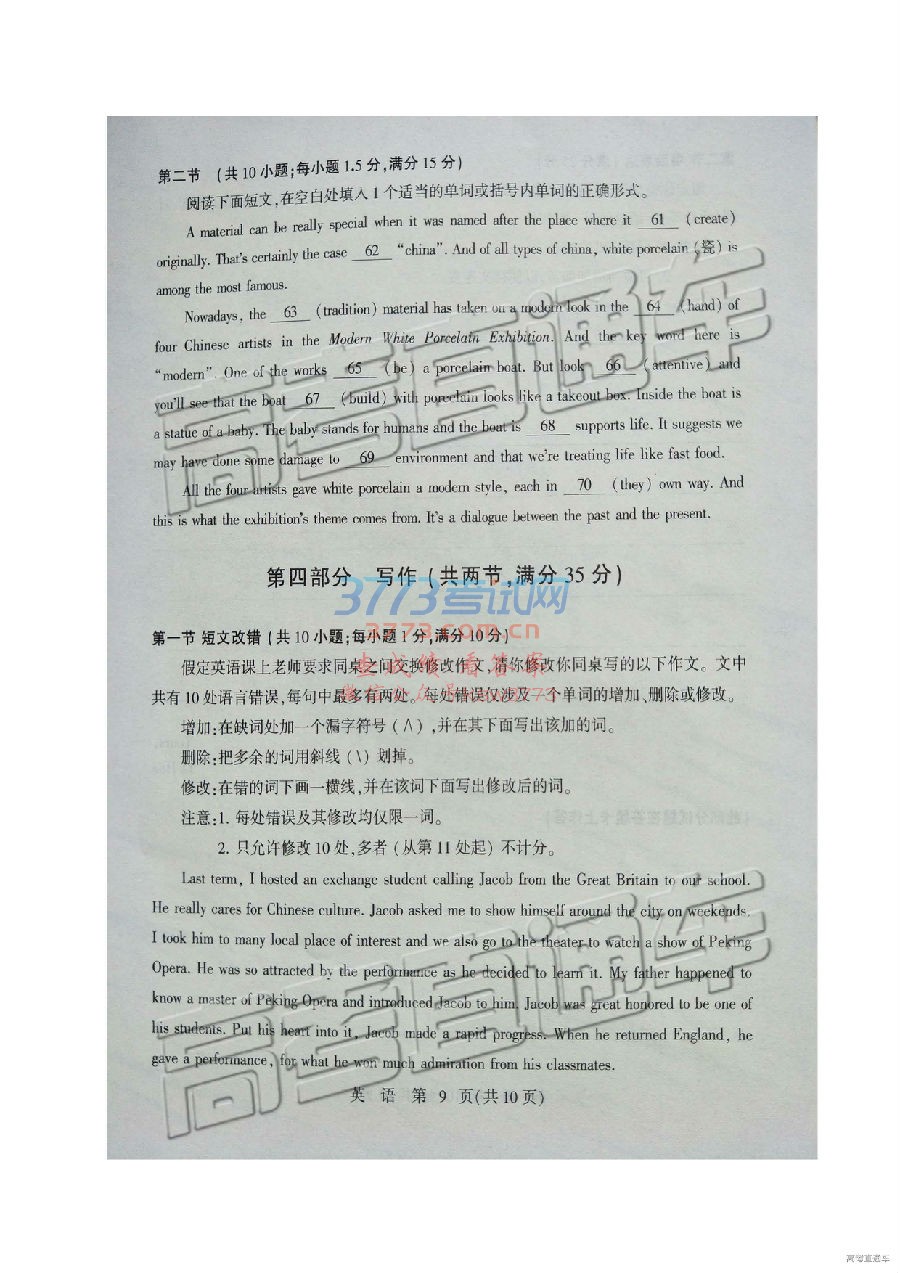 第二节 (共 10 小题;每小题 1.5 分,满分 15 分)
阅读下面短文,在空白处填入 1 个适当的单词或括号内单词的正确形式。
A material can be really special when it was named after the place where it 61 (create)
originally. That's certainly the case 62 “china”. And of all types of china, white porcelain (瓷) is
among the most famous.
Nowadays, the 63 (tradition) material has taken on a modern look in the 64 (hand) of
four Chinese artists in the Modern White Porcelain Exhibition. And the key word here is
“modern”. One of the works 65 (be) a porcelain boat. But look 66 (attentive) and
you'll see that the boat 67 (build) with porcelain looks like a takeout box. Inside the boat is
a statue of a baby. The baby stands for humans and the boat is 68 supports life. It suggests we
may have done some damage to 69 environment and that we're treating life like fast food.
All the four artists gave white porcelain a modern style, each in 70 (they) own way. And
this is what the exhibition's theme comes from. It's a dialogue between the past and the present.
第四部分 写作 (共两节,满分 35 分)
3773考试网
3773.com.cn
查成绩看答案
第一节 短文改错 (共 10 小题;每小题 1 分,满分 10 分)
假定英语课上老师要求同桌之间交换修改作文,请你修改你同桌写的以下作文。文中
共有 10 处语言错误,每句中最多有两处。每处错误仅涉及一个单词的增加、删除或修改。
增加:在缺词处加一个漏字符号 (∧) ,并在其下面写出该加的词。
删除:把多余的词用斜线 (\) 划掉。
修改:在错的词下画一横线,并在该词下面写出修改后的词。
注意:1. 每处错误及其修改均仅限一词。
2. 只允许修改 10 处,多者 (从第 11 处起) 不计分。
Last term, I hosted an exchange student calling Jacob from the Great Britain to our school.
He really cares for Chinese culture. Jacob asked me to show himself around the city on weekends.
I took him to many local place of interest and we also go to the theater to watch a show of Peking
Opera. He was so attracted by the performance as he decided to learn it. My father happened to
know a master of Peking Opera and introduced Jacob to him. Jacob was great honored to be one of
his students. Put his heart into it, Jacob made a rapid progress. When he returned England, he
gave a performance, for what he won much admiration from his classmates.
英 语 第 9 页(共 10 页)
高考直通车
高考直通车
高考直通车